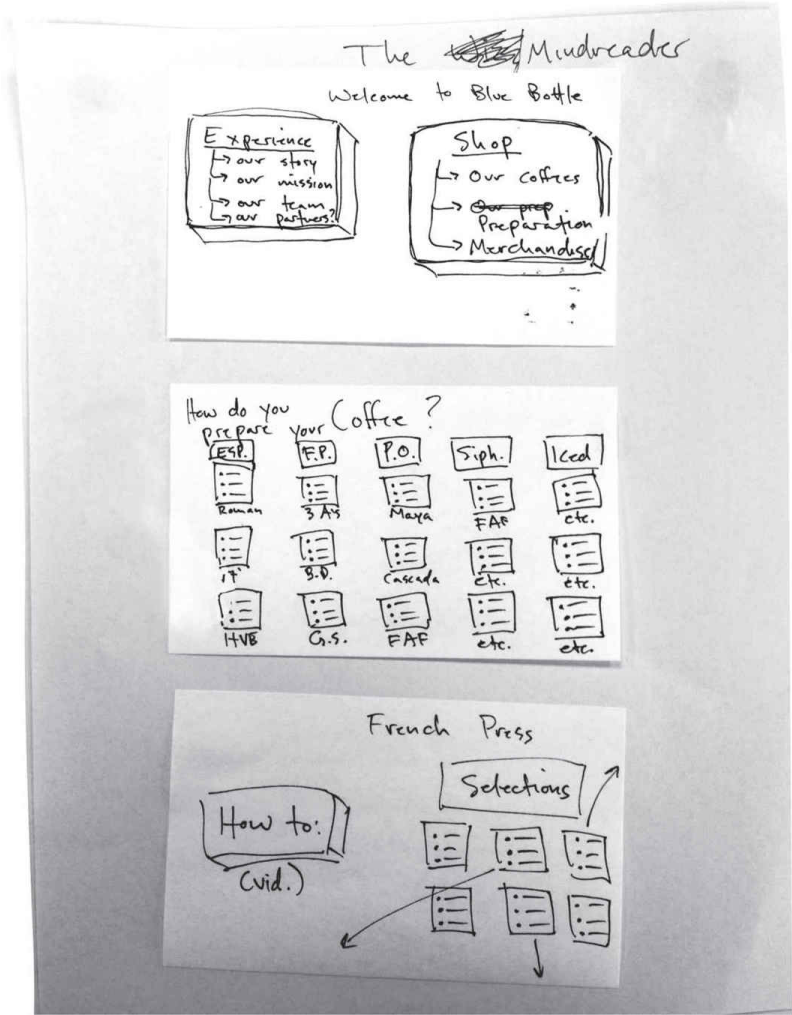 The Mindreader
Welcome to Blue Bottle
Experience
our story
our mission
our team
our partners?
Shop
Our coffees
Our prep.
Preparation
Merchandise
How do you
prepare your Coffee?
ESP. F.P. P.O. Siph. Iced
Roman 3 A's Maya FAF etc.
17' B.D. Cascada etc. etc.
HVB G.S. FAF etc. etc.
French Press
Selections
How to:
(vid.)